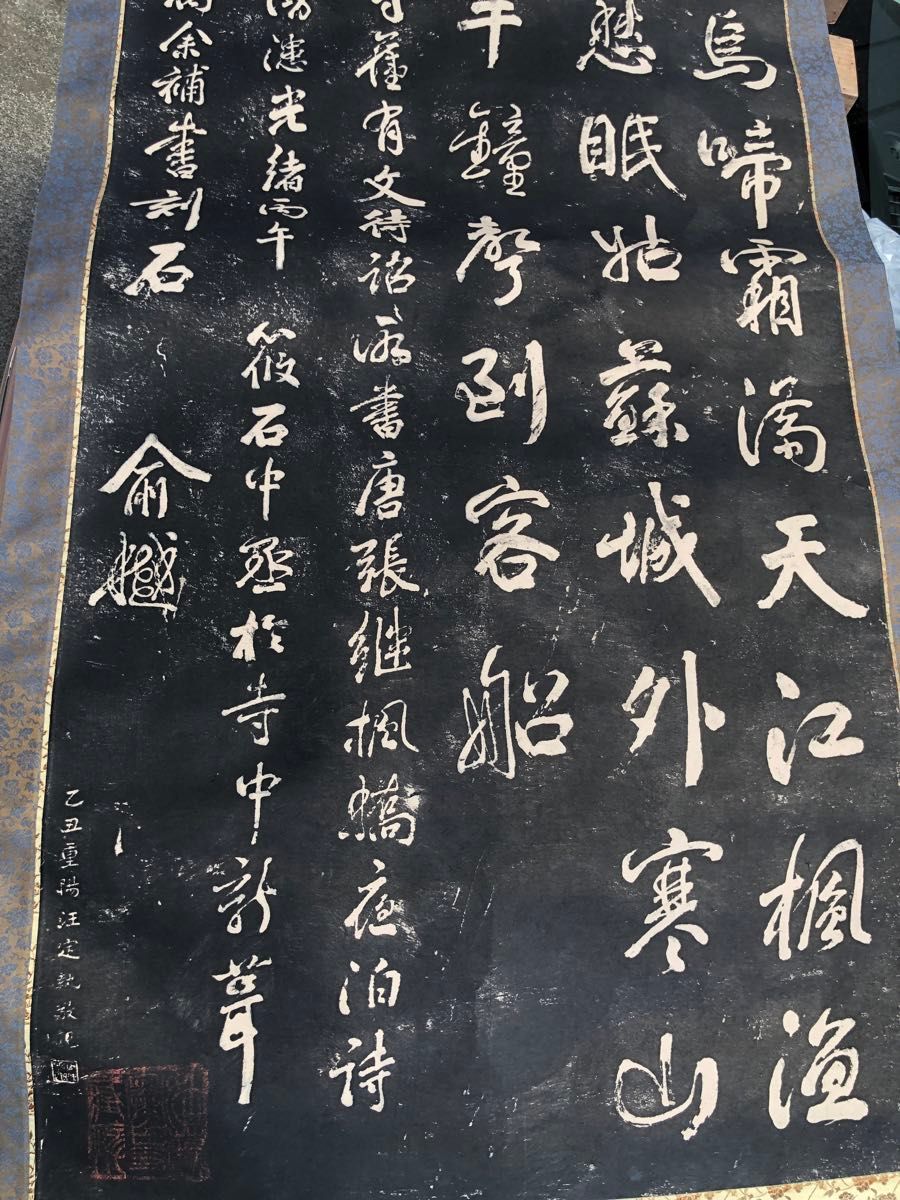 烏啼霜滿天江楓漁
愁眠姑蘇城外寒山
半鐘聲到客船
寺舊有文待詔所書唐張繼楓橋夜泊詩
漶光緒丙午 筱石中丞於寺中新葺
余補書刻石
俞樾
乙丑重陽汪定執敬